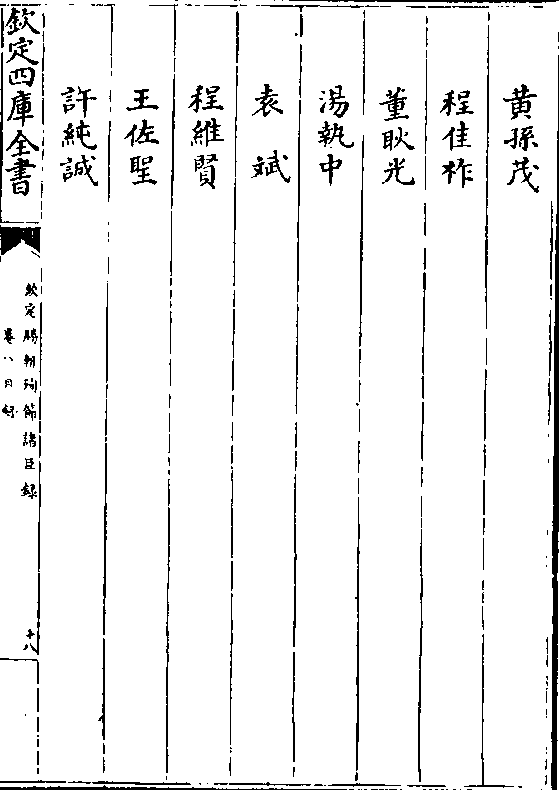 黄孫茂
程佳祚
董耿光
湯執中
袁斌
程維賢
王佐聖
許純誠
欽定四庫全書
欽定勝朝殉節諸臣録
卷八目録
十八